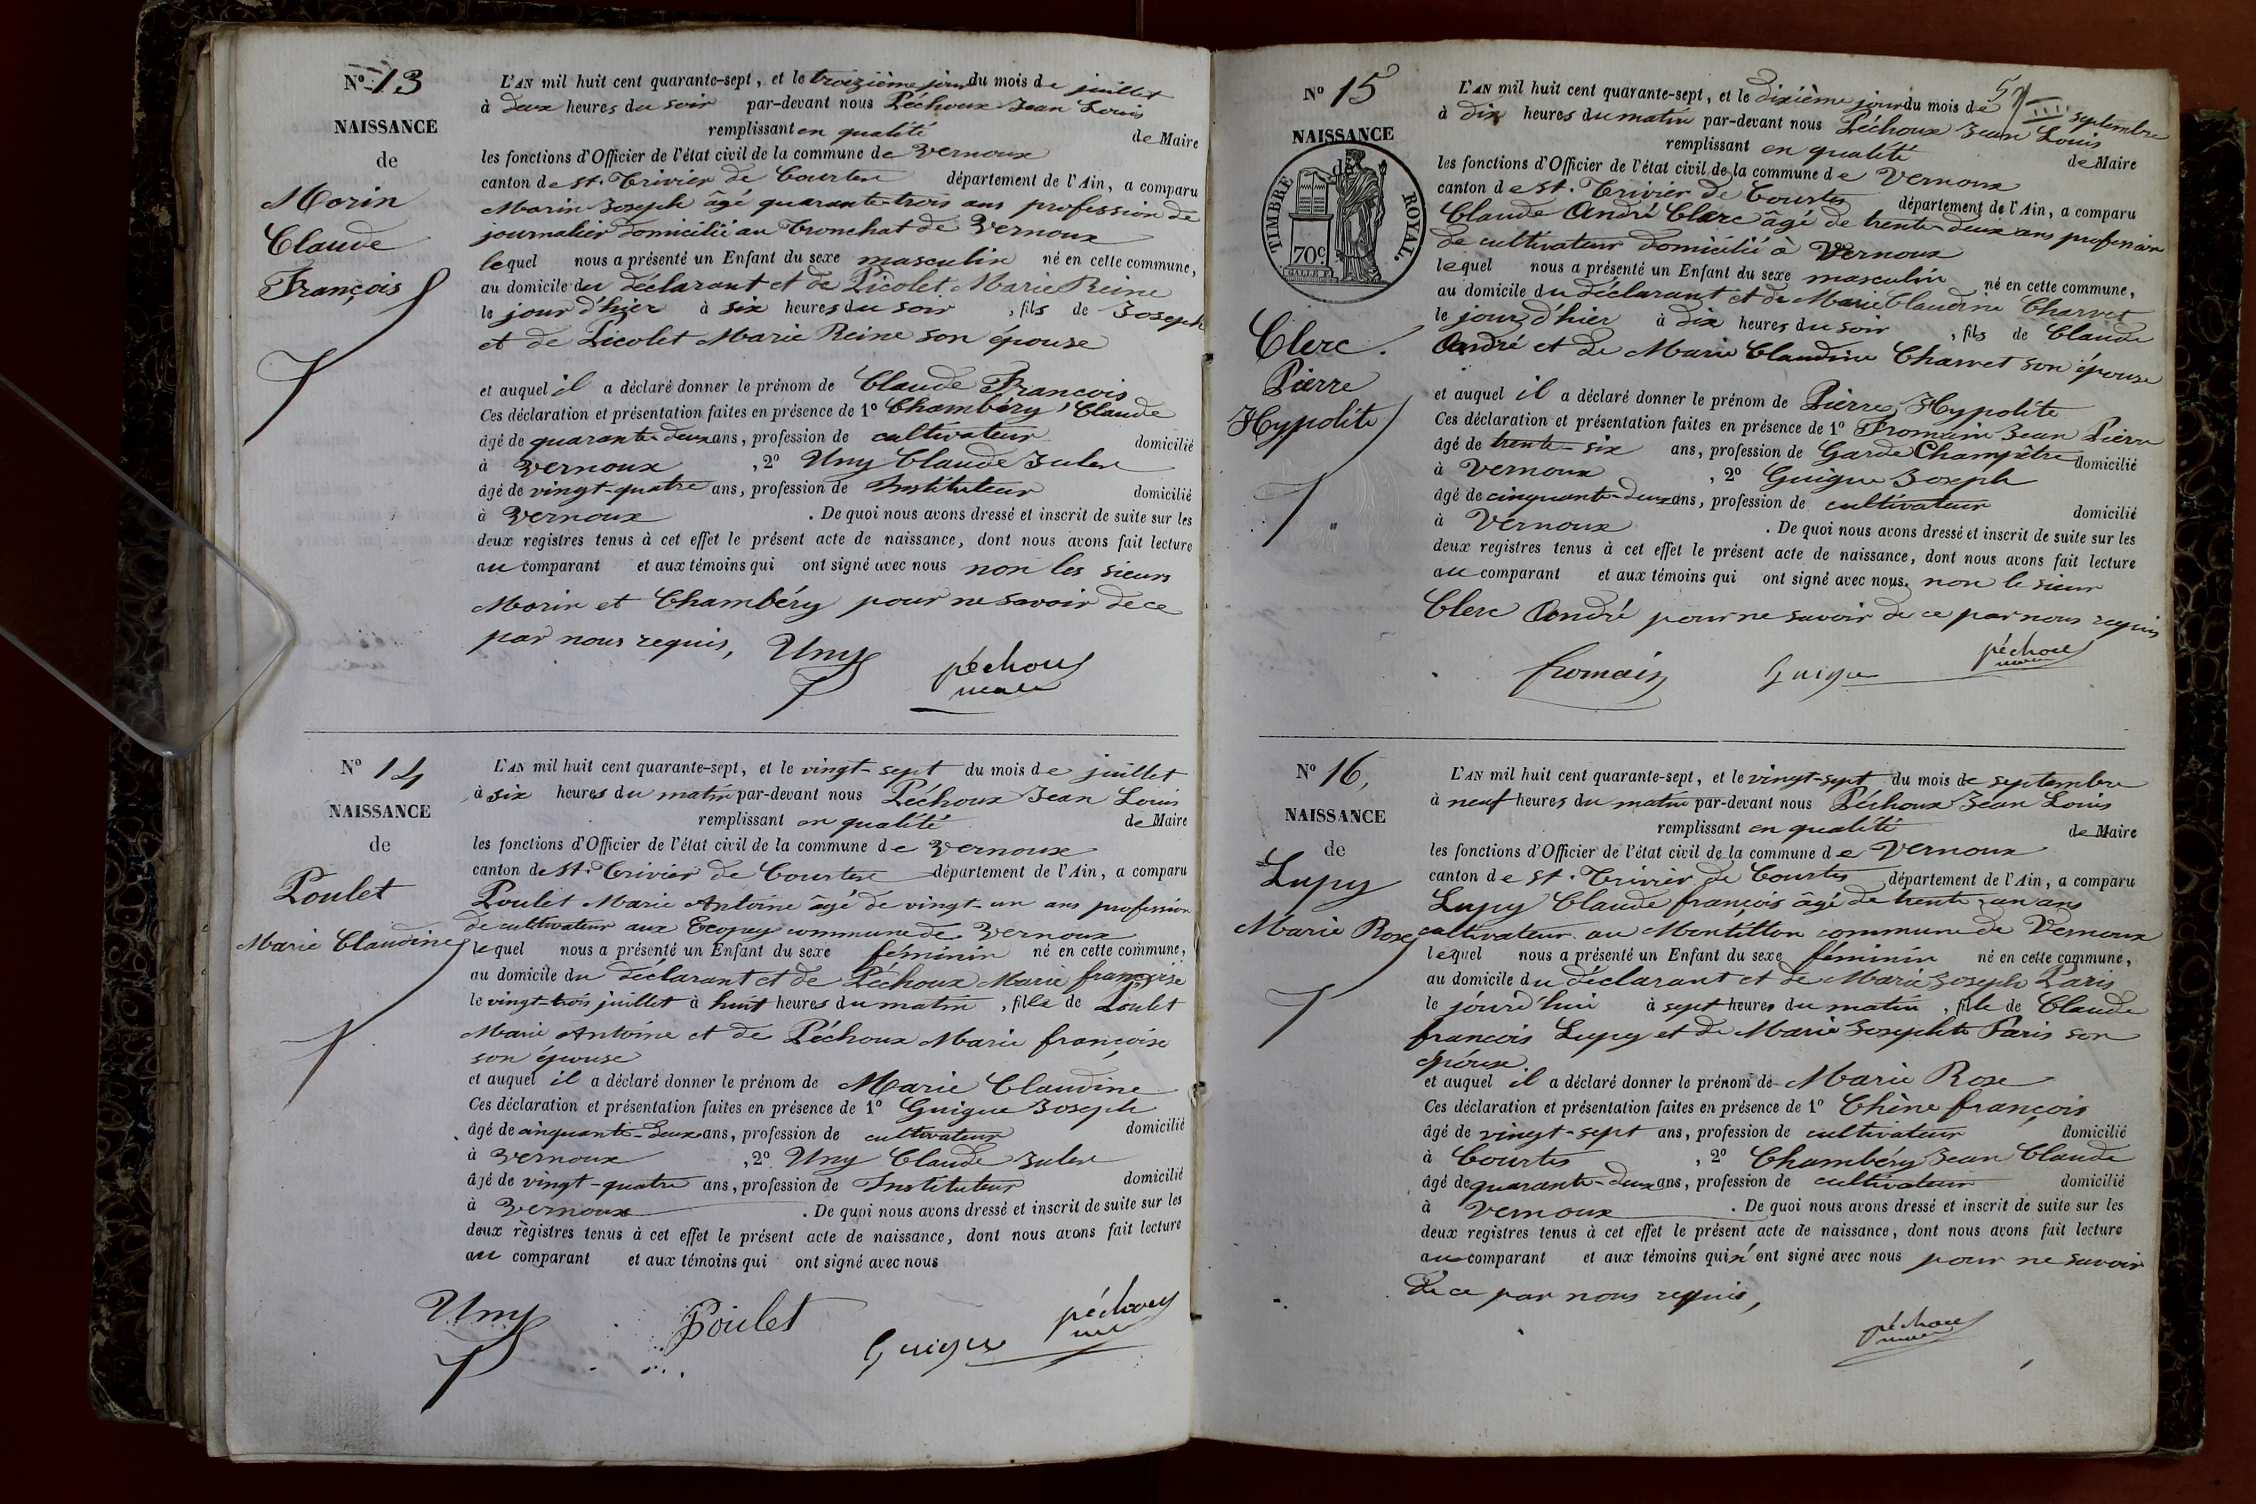 N° 13
NAISSANCE
de
Morin
Claude
François
L'AN mil huit cent quarante-sept, et le troizième jour du mois de juillet
à deux heures du soir par-devant nous Péchoux Jean Louis
remplissant en qualité de Maire
les fonctions d'Officier de l'état civil de la commune de Vernoux
canton de St. Trivier de Courtes département de l'Ain, a comparu
Morin Joseph âgé quarante-trois ans profession de
journalier domicilié au Tronchat de Vernoux
lequel nous a présenté un Enfant du sexe masculin né en cette commune,
au domicile du déclarant et de Picolet Marie Reine
le jour d'hier à six heures du soir, fils de Joseph
et de Picolet Marie Reine son épouse
et auquel il a déclaré donner le prénom de Claude François
Ces déclaration et présentation faites en présence de 1° Chambéry Claude
âgé de quarante-deux ans, profession de cultivateur domicilié
à Vernoux, 2° Uny Claude Jules
âgé de vingt-quatre ans, profession de Instituteur domicilié
à Vernoux. De quoi nous avons dressé et inscrit de suite sur les
deux registres tenus à cet effet le présent acte de naissance, dont nous avons fait lecture
au comparant et aux témoins qui ont signé avec nous non les sieurs
Morin et Chambéry pour ne savoir de ce
par nous requis, Uny péchoux
maire
N° 14
NAISSANCE
de
Poulet
Marie Claudine
L'AN mil huit cent quarante-sept, et le vingt-sept du mois de juillet
à six heures du matin par-devant nous Péchoux Jean Louis
remplissant en qualité de Maire
les fonctions d'Officier de l'état civil de la commune de Vernoux
canton de St. Trivier de Courtes département de l'Ain, a comparu
Poulet Marie Antoine âgé de vingt-un ans profession
de cultivateur aux Ecopey commune de Vernoux
lequel nous a présenté un Enfant du sexe féminin né en cette commune,
au domicile du déclarant et de Péchoux Marie françoise
le vingt-trois juillet à huit heures du matin, fille de Poulet
Marie Antoine et de Péchoux Marie françoise
son épouse
et auquel il a déclaré donner le prénom de Marie Claudine
Ces déclaration et présentation faites en présence de 1° Guigue Joseph
âgé de cinquante-deux ans, profession de cultivateur domicilié
à Vernoux, 2° Uny Claude Jules
âgé de vingt-quatre ans, profession de Instituteur domicilié
à Vernoux. De quoi nous avons dressé et inscrit de suite sur les
deux registres tenus à cet effet le présent acte de naissance, dont nous avons fait lecture
au comparant et aux témoins qui ont signé avec nous
Uny Poulet Guigue péchoux
maire
N° 15
NAISSANCE
de
TIMBRE ROYAL.
70c
Clerc.
Pierre
Hypolite
L'AN mil huit cent quarante-sept, et le dixième jour du mois de septembre
à dix heures du matin par-devant nous Péchoux Jean Louis
remplissant en qualité de Maire
les fonctions d'Officier de l'état civil de la commune de Vernoux
canton de St. Trivier de Courtes département de l'Ain, a comparu
Claude André Clerc âgé de trente-deux ans profession
de cultivateur domicilié à Vernoux
lequel nous a présenté un Enfant du sexe masculin né en cette commune,
au domicile du déclarant et de Marie Claudine Charvet
le jour d'hier à dix heures du soir, fils de Claude
André et de Marie Claudine Charvet son épouse
et auquel il a déclaré donner le prénom de Pierre Hypolite
Ces déclaration et présentation faites en présence de 1° Fromain Jean Pierre
âgé de trente-six ans, profession de Garde Champêtre domicilié
à Vernoux, 2° Guigue Joseph
âgé de cinquante-deux ans, profession de cultivateur domicilié
à Vernoux. De quoi nous avons dressé et inscrit de suite sur les
deux registres tenus à cet effet le présent acte de naissance, dont nous avons fait lecture
au comparant et aux témoins qui ont signé avec nous, non le sieur
Clerc André pour ne savoir de ce par nous requis
fromain Guigue péchoux
maire
N° 16,
NAISSANCE
de
Lupy
Marie Rose
L'AN mil huit cent quarante-sept, et le vingt-sept du mois de septembre
à neuf heures du matin par-devant nous Péchoux Jean Louis
remplissant en qualité de Maire
les fonctions d'Officier de l'état civil de la commune de Vernoux
canton de St. Trivier de Courtes département de l'Ain, a comparu
Lupy Claude françois âgé de trente-un ans
cultivateur au Montillon commune de Vernoux
lequel nous a présenté un Enfant du sexe féminin né en cette commune,
au domicile du déclarant et de Marie Joseph Paris
le jourd'hui à sept heures du matin, fille de Claude
françois Lupy et de Marie Josephte Paris son
épouse.
et auquel il a déclaré donner le prénom de Marie Rose
Ces déclaration et présentation faites en présence de 1° Chêne françois
âgé de vingt-sept ans, profession de cultivateur domicilié
à Courtes, 2° Chambéry Jean Claude
âgé de quarante-deux ans, profession de cultivateur domicilié
à Vernoux. De quoi nous avons dressé et inscrit de suite sur les
deux registres tenus à cet effet le présent acte de naissance, dont nous avons fait lecture
au comparant et aux témoins qui n'ont signé avec nous pour ne savoir
de ce par nous requis,
péchoux
maire